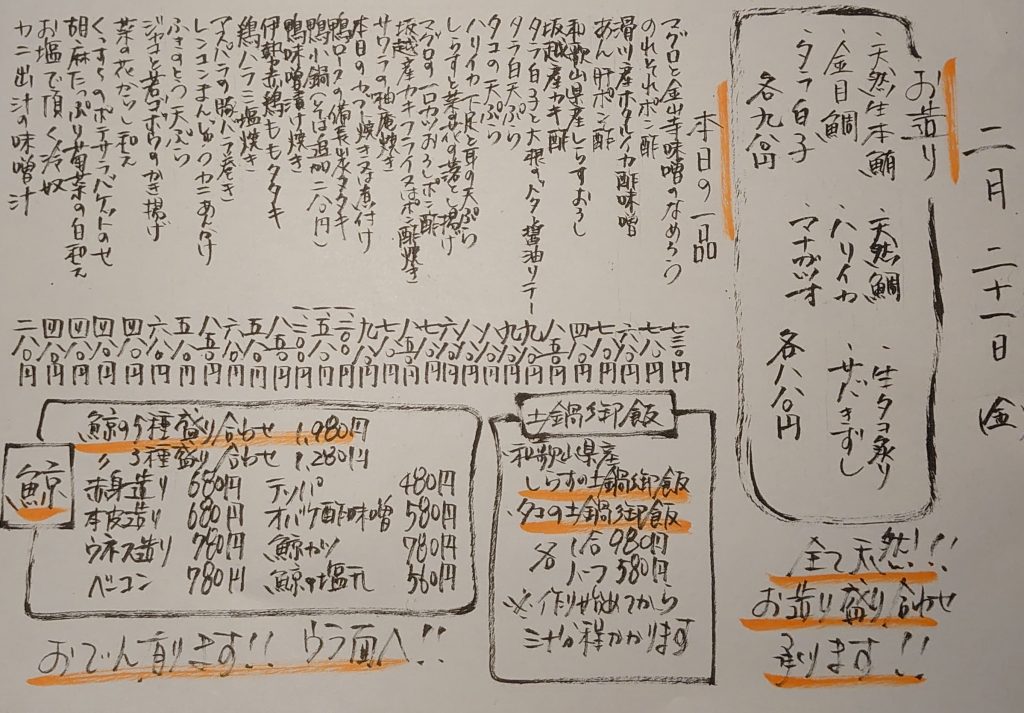 二月二十一日(金)
お造り
・天然生本鮪 ・天然鯛 ・生タコ炙り
・金目鯛 ・ハリイカ ・サバきずし
・タラ白子 ・マナガツオ
各九八〇円 各八八〇円
全て天然!!!
お造り盛り合わせ
承ります!!
本日の一品
マグロと金山寺味噌のなめろう 七三〇円
のれそれポン酢 七八〇円
滑川産ホタルイカ酢味噌 六八〇円
あん肝ポン酢 七八〇円
和歌山県産しらすおろし 四八〇円
坂越産カキ酢 八五〇円
タラ白子と大根のバタ醤油ソテー 九八〇円
タラ白子天ぷら 九八〇円
タコの天ぷら 八八〇円
ハリイカ下足と耳の天ぷら 六八〇円
しらすと 落とし揚げ 七八〇円
マグロの一口カツおろしポン酢
坂越産カキフライ又はポン酢焼き 八五〇円
サワラの柚庵焼き 七八〇円
本日のカブト焼き又は煮付け 九八〇円
鴨ロースの備長炭タタキ
鴨小鍋(そば追加二八〇円)
鴨味噌漬け焼き
伊勢赤鶏ももタタキ 八五〇円
鶏ハラミ塩焼き 五八〇円
アスパラの豚バラ巻き 六八〇円
レンコンまんじゅうカニあんかけ 八五〇円
ふきのとう天ぷら 五八〇円
ジャコと若ゴボウのかき揚げ 六八〇円
菜の花だし和え 四八〇円
くずきのポテサラバゲットのせ 四八〇円
胡麻たっぷり菊菜の白和え 四八〇円
お塩で頂く冷奴 四八〇円
カニ出汁の味噌汁 二八〇円
土鍋御飯
・和歌山県産
しらすの土鍋御飯
・タコの土鍋御飯
各 1合 980円
ハーフ 580円
※作り始めてから
三十分程かかります
鯨
鯨の5種盛り合わせ 1,980円
〃 3種盛り合わせ 1,280円
赤身造り 680円 テッパ 480円
本皮造り 680円 オバケ酢味噌 580円
ウネス造り 780円 鯨カツ 780円
ベーコン 780円 鯨の塩 580円
おでん有ります!! ウラ面へ!!